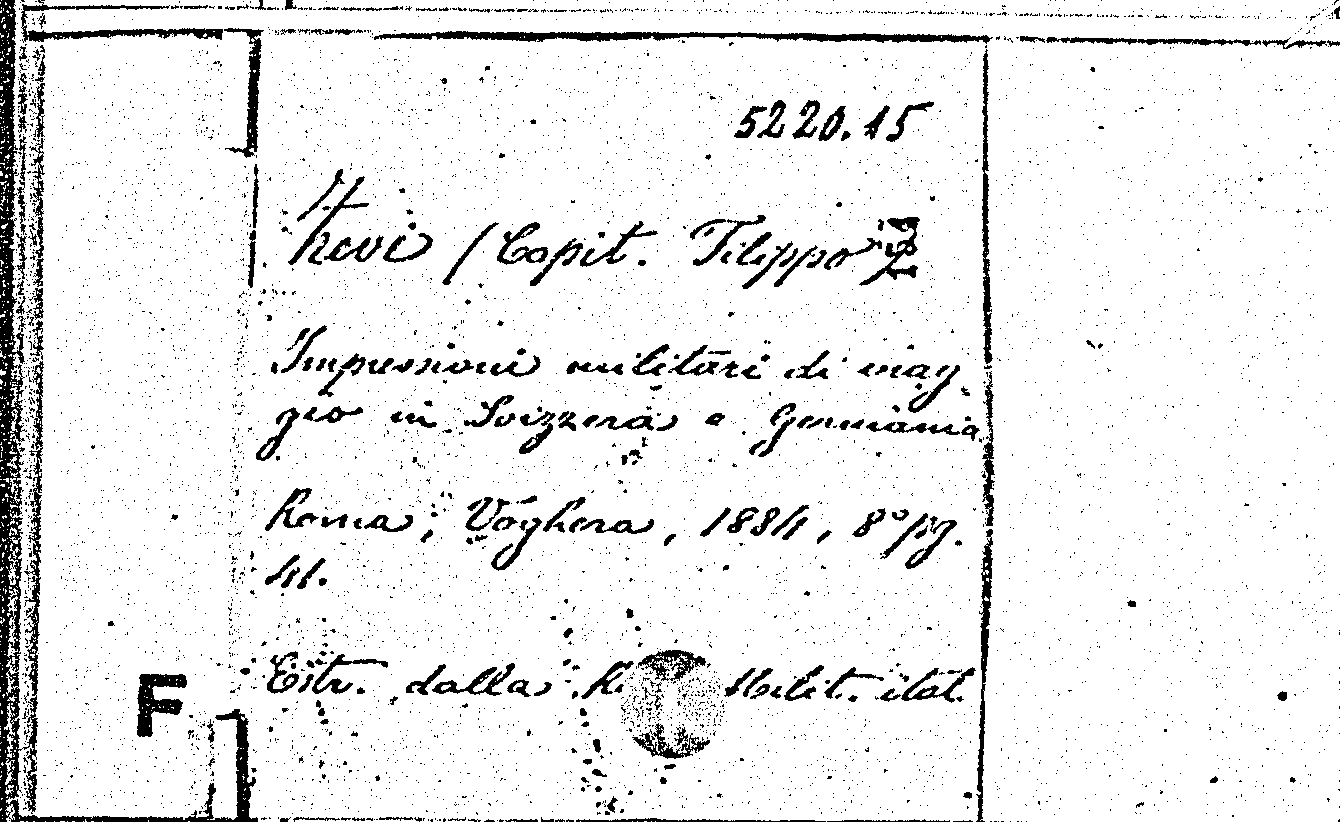 5220.15
(Capit. Filippo
Impressioni militari di viag-
gio in Svizzera e Germania
Roma, Voghera, 1884, 8º pg.
41.
Estr. dalla Milit. ital.
F